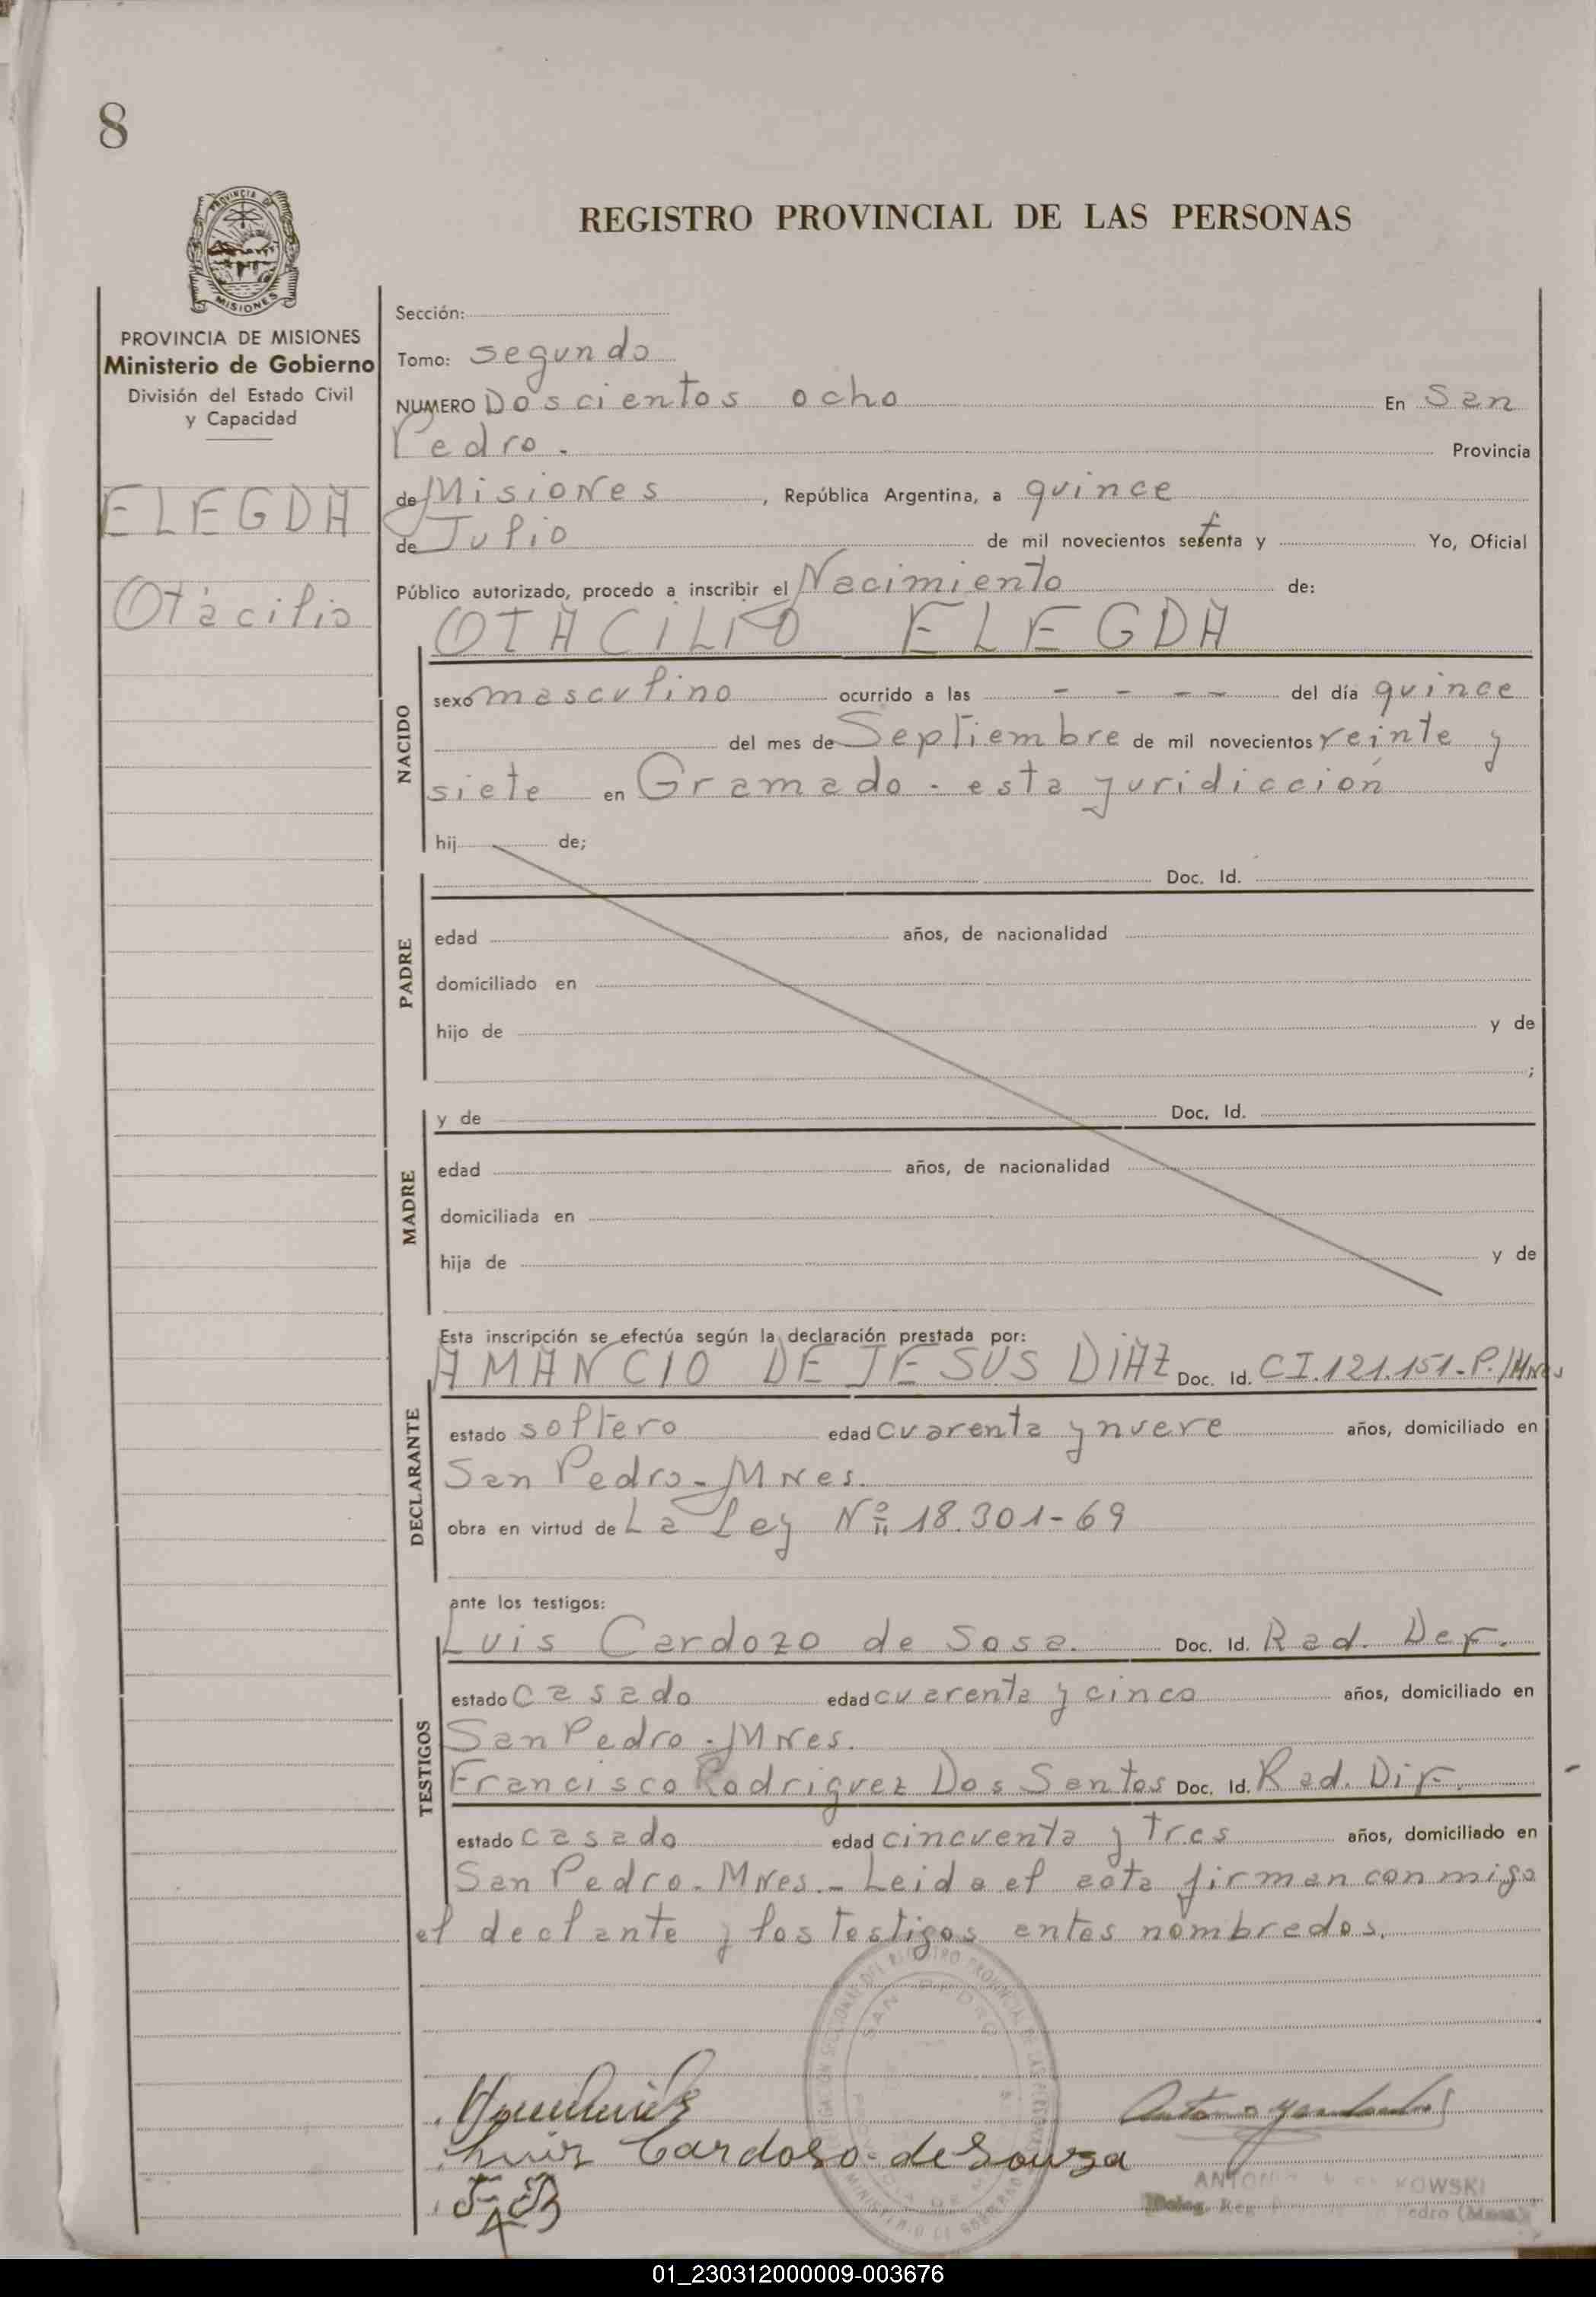 8
PROVINCIA DE
MISIONES
REGISTRO PROVINCIAL DE LAS PERSONAS
PROVINCIA DE MISIONES
Ministerio de Gobierno
División del Estado Civil
y Capacidad
ELEGDA
Otacilio
Sección:
Tomo: segundo
NUMERO Doscientos ocho En San
Pedro. Provincia
de Misiones, República Argentina, a quince
de Julio de mil novecientos setenta y Yo, Oficial
Público autorizado, procedo a inscribir el Nacimiento de:
OTACILIO ELEGDA
NACIDO
sexo masculino ocurrido a las - - - - del día quince
del mes de Septiembre de mil novecientos veinte y
siete en Gramado - esta juridiccion
hij de;
PADRE
Doc. Id.
edad años, de nacionalidad
domiciliado en
hijo de y de
;
MADRE
y de Doc. Id.
edad años, de nacionalidad
domiciliada en
hija de y de
DECLARANTE
Esta inscripción se efectúa según la declaración prestada por:
AMANCIO DE JESUS DIAZ Doc. Id. CI.121.151-P./Mnes
estado soltero edad cuarenta y nueve años, domiciliado en
San Pedro-Mnes.
obra en virtud de La Ley Nº 18.301-69
TESTIGOS
ante los testigos:
Luis Cardozo de Sosa. Doc. Id. Rad. Def.
estado casado edad cuarenta y cinco años, domiciliado en
San Pedro-Mnes.
Francisco Rodriguez Dos Santos Doc. Id. Rad. Dif.
estado casado edad cincuenta y tres años, domiciliado en
San Pedro-Mnes.- Leida el acta firman conmigo
el declante y los testigos antes nombrados.
SAN PEDRO
Luis Cardoso de Souza
KOWSKI
01_230312000009-003676